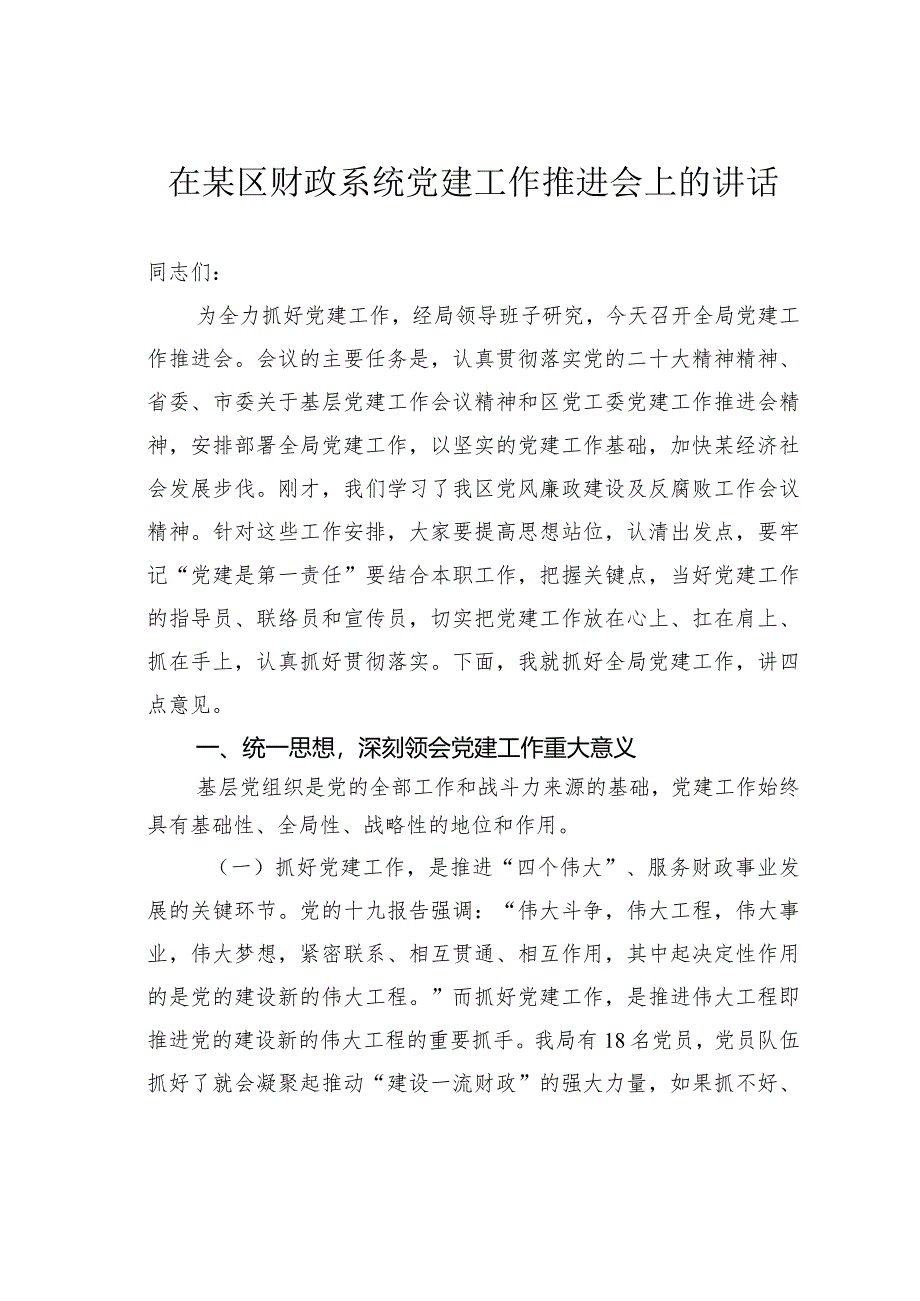 在某区财政系统党建工作推进会上的讲话
同志们：
为全力抓好党建工作，经局领导班子研究，今天召开全局党建工
作推进会。会议的主要任务是，认真贯彻落实党的二十大精神精神、
省委、市委关于基层党建工作会议精神和区党工委党建工作推进会精
神，安排部署全局党建工作，以坚实的党建工作基础，加快某经济社
会发展步伐。刚才，我们学习了我区党风廉政建设及反腐败工作会议
精神。针对这些工作安排，大家要提高思想站位，认清出发点，要牢
记“党建是第一责任”要结合本职工作，把握关键点，当好党建工作
的指导员、联络员和宣传员，切实把党建工作放在心上、扛在肩上、
抓在手上，认真抓好贯彻落实。下面，我就抓好全局党建工作，讲四
点意见。
一、统一思想，深刻领会党建工作重大意义
基层党组织是党的全部工作和战斗力来源的基础，党建工作始终
具有基础性、全局性、战略性的地位和作用。
（一）抓好党建工作，是推进“四个伟大”、服务财政事业发
展的关键环节。党的十九报告强调：“伟大斗争，伟大工程，伟大事
业，伟大梦想，紧密联系、相互贯通、相互作用，其中起决定性作用
的是党的建设新的伟大工程。”而抓好党建工作，是推进伟大工程即
推进党的建设新的伟大工程的重要抓手。我局有 18 名党员，党员队伍
抓好了就会凝聚起推动“建设一流财政”的强大力量，如果抓不好、